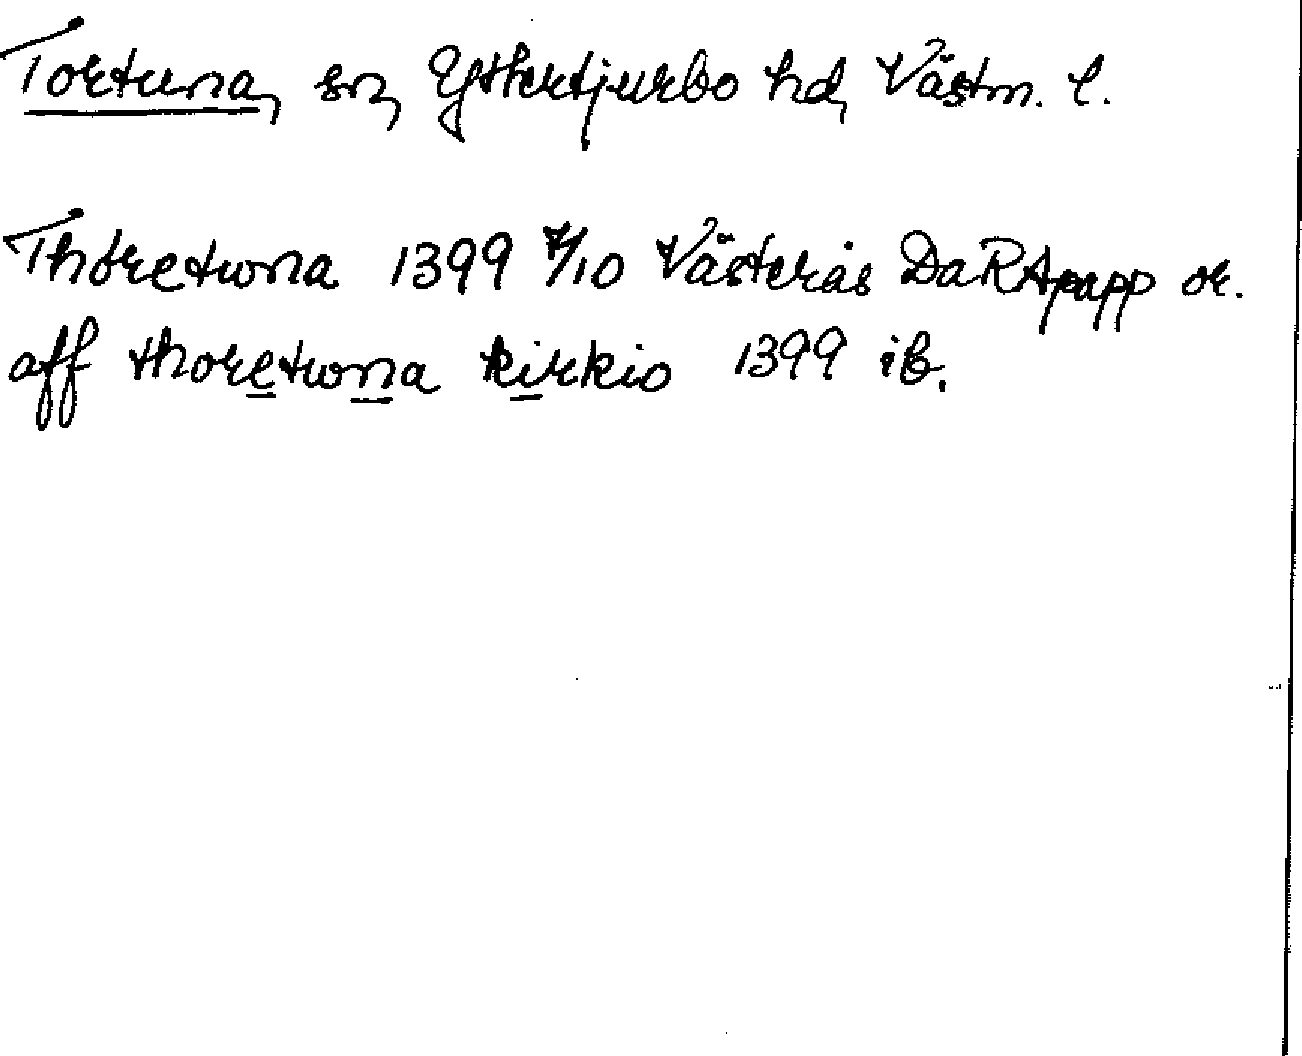 Tortuna, sn, Yttertjurbo hd, Västm. l.
Thoretwna 1399 7/10 Västerås DaRApapp or.
aff thoretwna kirkio 1399 ib.